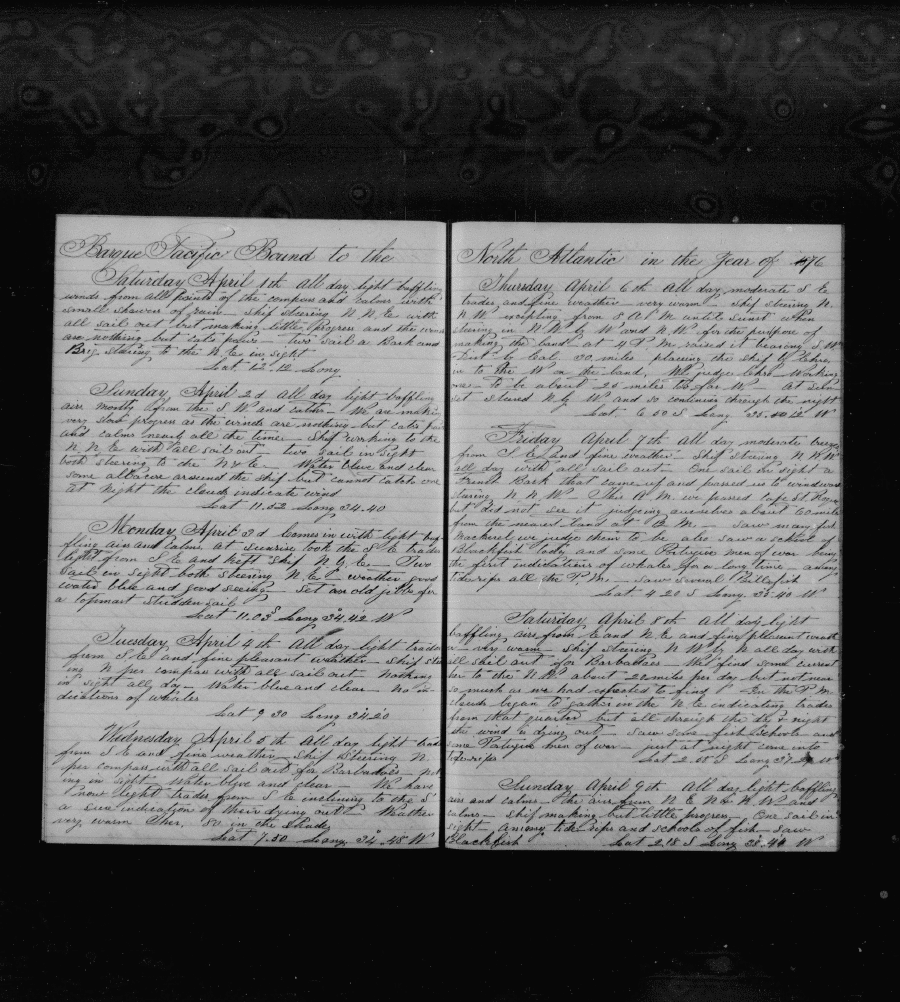 Barque Pacific Bound to the
Saturday April 1th All day light baffling
winds from all points of the compas and calms with
small showers of rain Ship steering N N E with
all sail out but making little progres and the winds
are nothing but cats paws — two sail a Bark and
Brig steering to the N E in sight
Lat 12.12 Long
Sunday April 2d All day light baffling
airs mostly from the S W and calms — We are making
very slow progres as the winds are nothing but cats paws
and calms nearly all the time — Ship working to the
N, N E with all sail out — two sail in sight
both steering to the N & E Water blue and clear
some albacore around the ship but cannot catch one
at night the clouds indicate wind
Lat 11.32 Long 34.40
Monday April 3d Comes in with light baf-
fling airs and calms, at sunrise took the S E trades
light from S E and kept Ship N, E — Two
sail in sight both steering N. E — weather good
water blue and good seeing — Set an old jib for
a topmast studden sail
Lat 11.03 S Long 34.42 W
Tuesday April 4th All day light trades
from S, E and fine pleasant weather — Ship steer
ing N per compas with all sail out Nothing
in sight all day — Water blue and clear — No in
dications of whales
Lat 9 30 Long 34.20
Wednesday April 5th All day light trades
from S E and fine weather — Ship Steering N
per compas with all sail out for Barbadoes noth
ing in sight Water blue and clear — We have
light trades from S E inclining to the S
a sure indication of their dying out — Weather
very warm Ther, 80 in the Shade
Lat 7.50 Long 34.48 W
North Atlantic in the Year of 76
Thursday April 6th All day moderate S E
trades, and fine weather very warm — Ship steering N.
N W excepting from 8 A M until sunset when
steering in N W by W and N W for the purpose of
making the land at 4 P M, raised it bearing S, W
Dist by Cal, 30 miles placing the ship by Chro,
in to the W on the land, We judge Chro Working
one to be about 20 miles to far W — At Sun
set steered N by W and so continue through the night
Lat 6 00 S Long 35.40 W
Friday April 7th All day moderate breeze
from S E, and fine weather Ship steering N N W
all day with all sail out — One sail in sight a
French Bark that came up and passed us to windward
steering N, N W — This A M. we passed Cape St. Roque
but did not see it judging ourselves about 60 miles
from the nearest land at M — Saw many fish
Mackerel we judge them to be also saw a school of
Blackfish today and some Portugise men of war being
the first indications of whales for a long time — among
tide rips all the P M — saw several Billofish
Lat 4 20 S Long, 35.40 W
Saturday April 8th All day light
baffling airs from E and N E and fine pleasant weath
er — very warm — Ship steering N W by N all day with
all sail out for Barbadoes We find some current
her to the N W about 22 miles per day but not near
so much as we had expected to find In the P M
clouds began to gather in the N E indicating trades
from that quarter but all through the day & night
the wind is dying out — Saw some fish Schools and
some Portugise men of war — just at night came into
tide rips Lat 2.08 S Long 37. W
Sunday April 9th All day light baffling
airs and calms — the airs from N E N & N W and
calms — Ship making but little progres — One sail in
sight among tide rips and schools of fish — saw
blackfish Lat 2.18 S Long 38.40 W